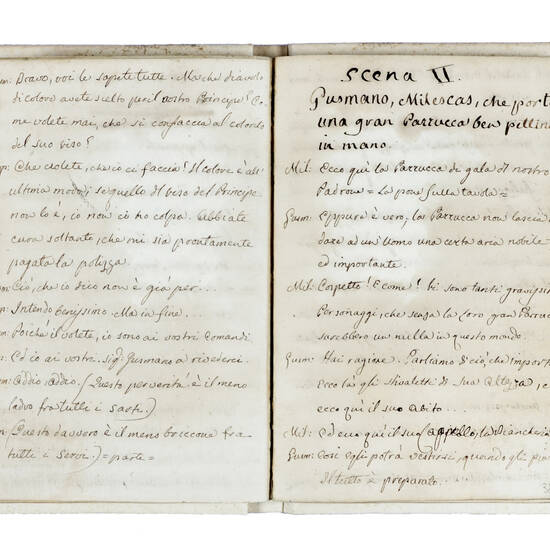 um: Bravo, voi le sapete tutte. Ma che diavolo
di colore avete scelto per il vostro Principe? Co-
me volete mai, che si confaccia al colore
del suo viso?
Che volete, che ci faccia? Il colore è all'
ultima moda, se quello del viso del Principe
non lo è, io non ci ho colpa. Abbiate
cura soltanto, che mi sia prontamente
pagata la polizza
Ciò, che io dico non è già per...
Intendo benissimo. Ma in fine.
Poiché il volete, io sono ai vostri Comandi.
Ed io ai vostri. Sig: Gusmano a rivederci.
addio addio. (Questo per verità è il meno
ladro fra tutti i Sarti.)
Questo davvero è il meno briccone fra
tutti i Servi.) = parte =
Scena VI.
Gusmano, Milescas, che port
una gran Parrucca ben pettina
in mano.
Mil: Ecco quì la Parrucca di gala del nostro
Padrone = La pone sulla tavola =
Gum: Eppure è vero; la Parrucca non lascia
dare ad un Uomo una certa aria nobile
ed importante.
Mil: Cospetto! E come! Vi sono tanti gravissi
Personaggi, che senza la loro gran Parruc
sarebbero un nulla in questo mondo.
Gum: Hai ragione. Parliamo di ciò, che import
Ecco là gli Stivaletti di Sua Altezza,
ecco quì il suo abito...
Mil: Ed ecco quì il suo Cappello, la Biancheria
Gum: Così egli potrà vestirsi, quando gli pia
Il tutto è preparato...